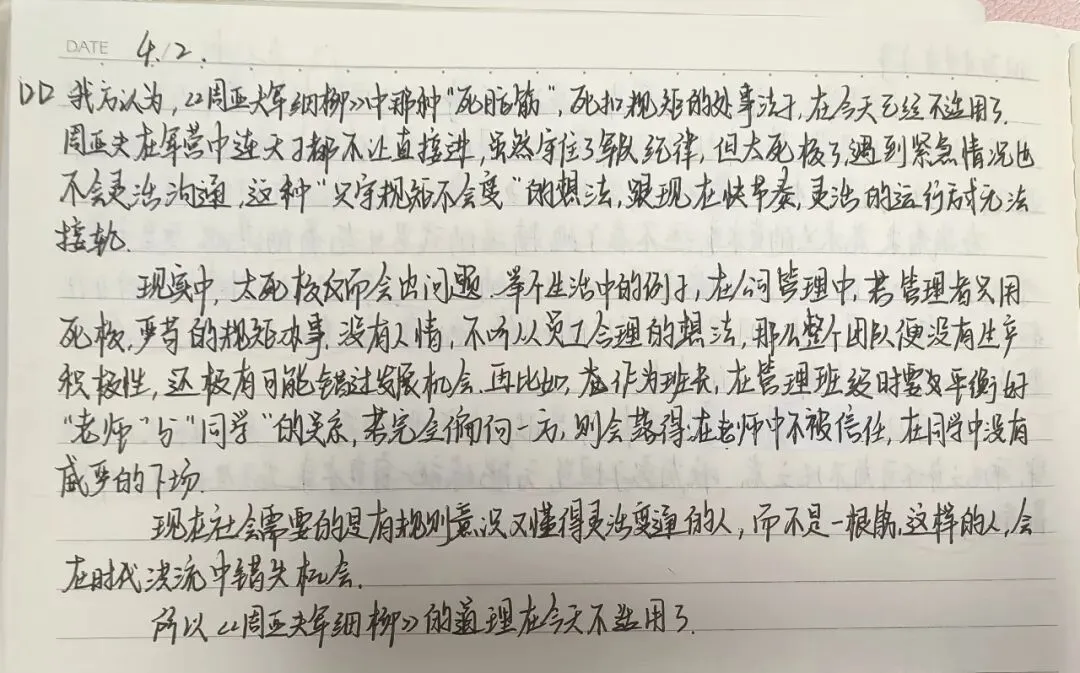 DATE 4.12.
我方认为,《周亚夫军细柳》中那种“死脑筋”,死扣规矩的处事法子,在今天已经不适用了.
周亚夫在军营中连天子都不让直接进,虽然守住了军队纪律,但太死板了,遇到紧急情况也
不会灵活沟通,这种“只守规矩不会变”的想法,跟现在快节奏,灵活的运行方式无法
接轨.
现实中,太死板反而会出问题.举个生活中的例子,在公司管理中,若管理者只用
死板,严苛的规矩办事,没有人情,不听从员工合理的想法,那么整个团队便没有生产
积极性,还极有可能错过发展机会.再比如,作为班长,在管理班级时要平衡好
“老师”与“同学”的关系,若完全偏向一方,则会落得:在老师中不被信任,在同学中没有
威严的下场.
现在社会需要的是有规则意识又懂得灵活变通的人,而不是一根筋,这样的人,会
在时代洪流中错失机会.
所以《周亚夫军细柳》的道理在今天不适用了.